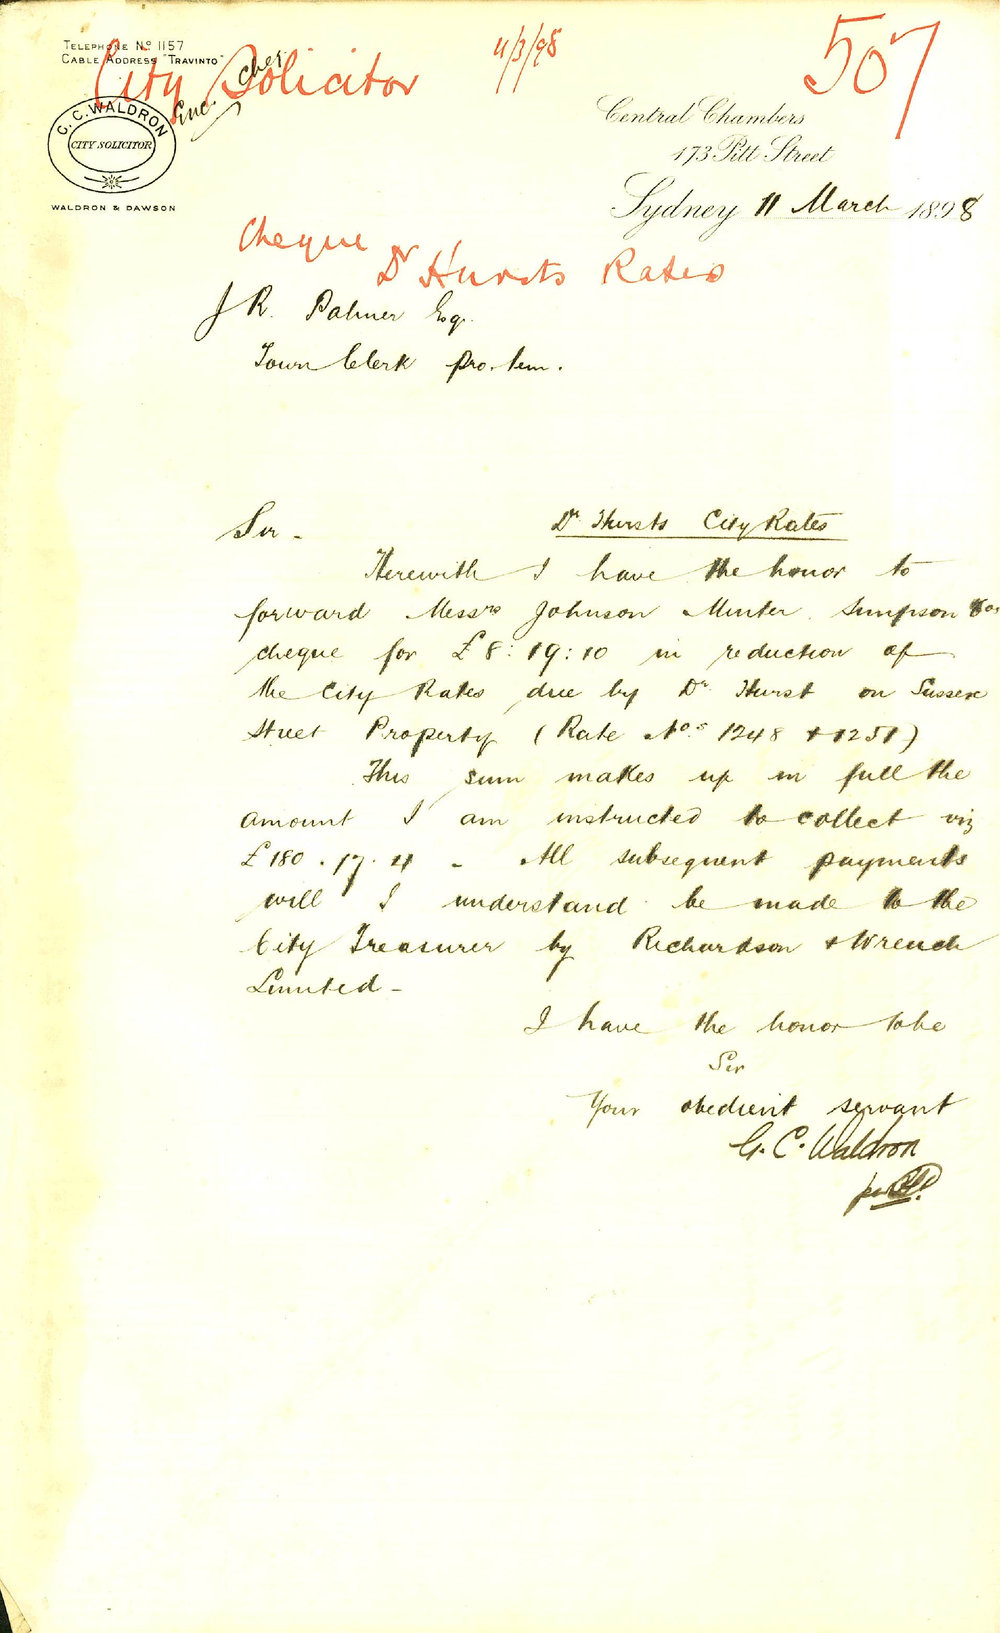 Telephone No 1157
Cable Address "Travinto"
City Solicitor
Enc. cheq
11/3/98
507
C. C. WALDRON
CITY SOLICITOR
WALDRON & DAWSON
Central Chambers
173 Pitt Street
Sydney 11 March 1898
Cheque
Dr Hursts Rates
J R. Palmer Esq.
Town Clerk pro. tem.
Sir -
Dr Hursts City Rates
Herewith I have the honor to
forward Messrs Johnson Minter Simpson & Cos
cheque for £8:19:10 in reduction of
the City Rates due by Dr Hurst on Sussex
Street Property (Rate Nos 1248 + 1251)
This sum makes up in full the
amount I am instructed to collect viz
£180.17.4 - All subsequent payments
will I understand be made to the
City Treasurer by Richardson & Wrench
Limited -
I have the honor to be
Sir
Your obedient servant
G. C. Waldron
per